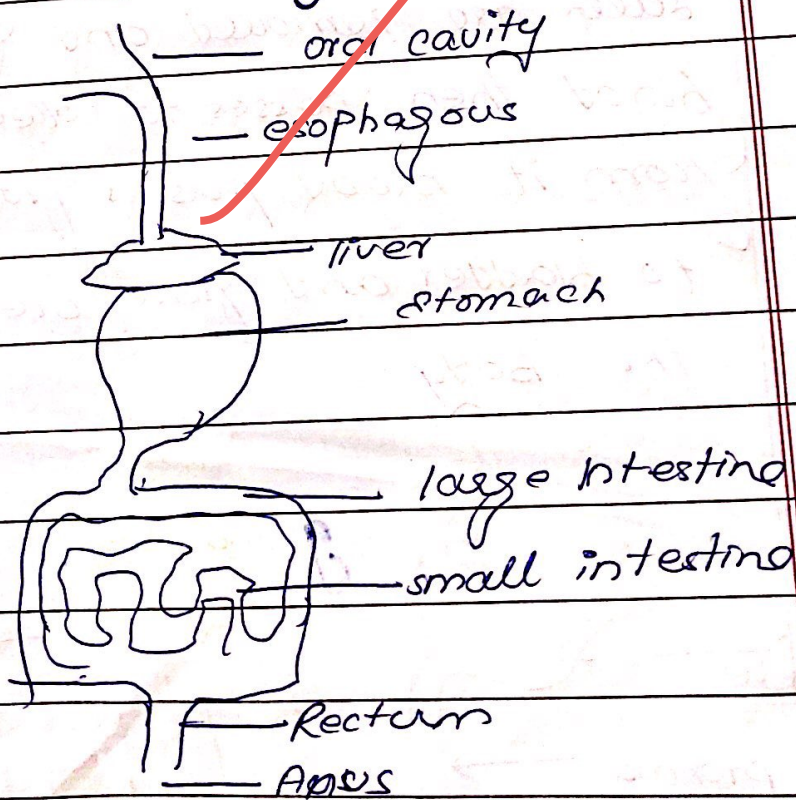 oral cavity
esophagous
liver
stomach
large intestine
small intestine
Rectum
Anus